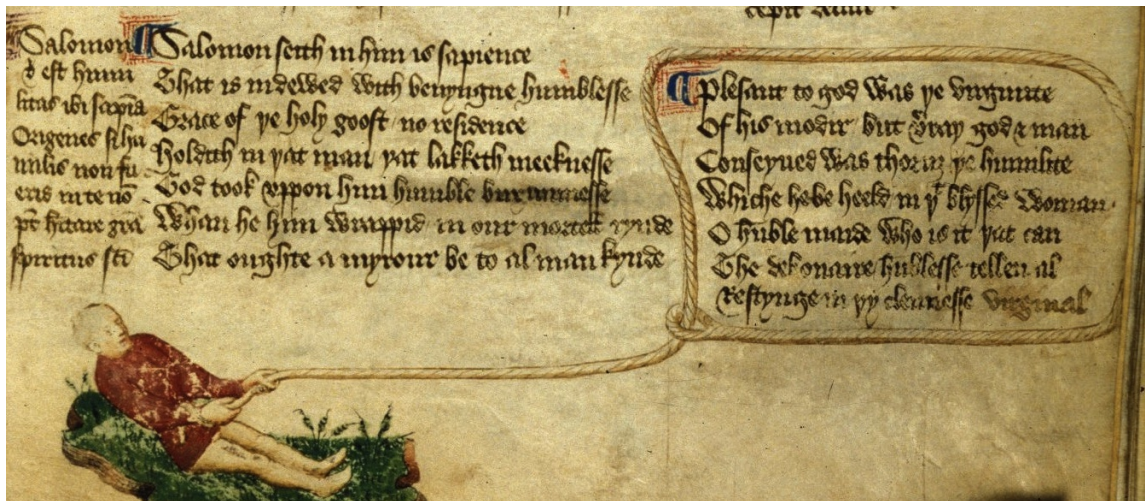 Salomon
& est humi
litas ibi sapīa
Origenes si hu
milis non fu
eris in te nō
pt̄ hītare grā
spiritus sc̄i
Salomon seith in him is sapience
That is indewed with benyngne humblesse
Grace of þe holy goost no residence
Holdith in þat man þat lakketh meeknesse
God took vppon him humble buxumnesse
Whan he him wrappid in our mortel kynde
That oughte a myrour be to al man kynde
Plesant to god was þe virginite
Of his modir but verray god & man
Conseyued was thorw þe humilite
Whiche he beheeld in þt blyssed woman
O hūble maide who is it þat can
The debonaire hūblesse tellen al
Restynge in þy clennesse virginal